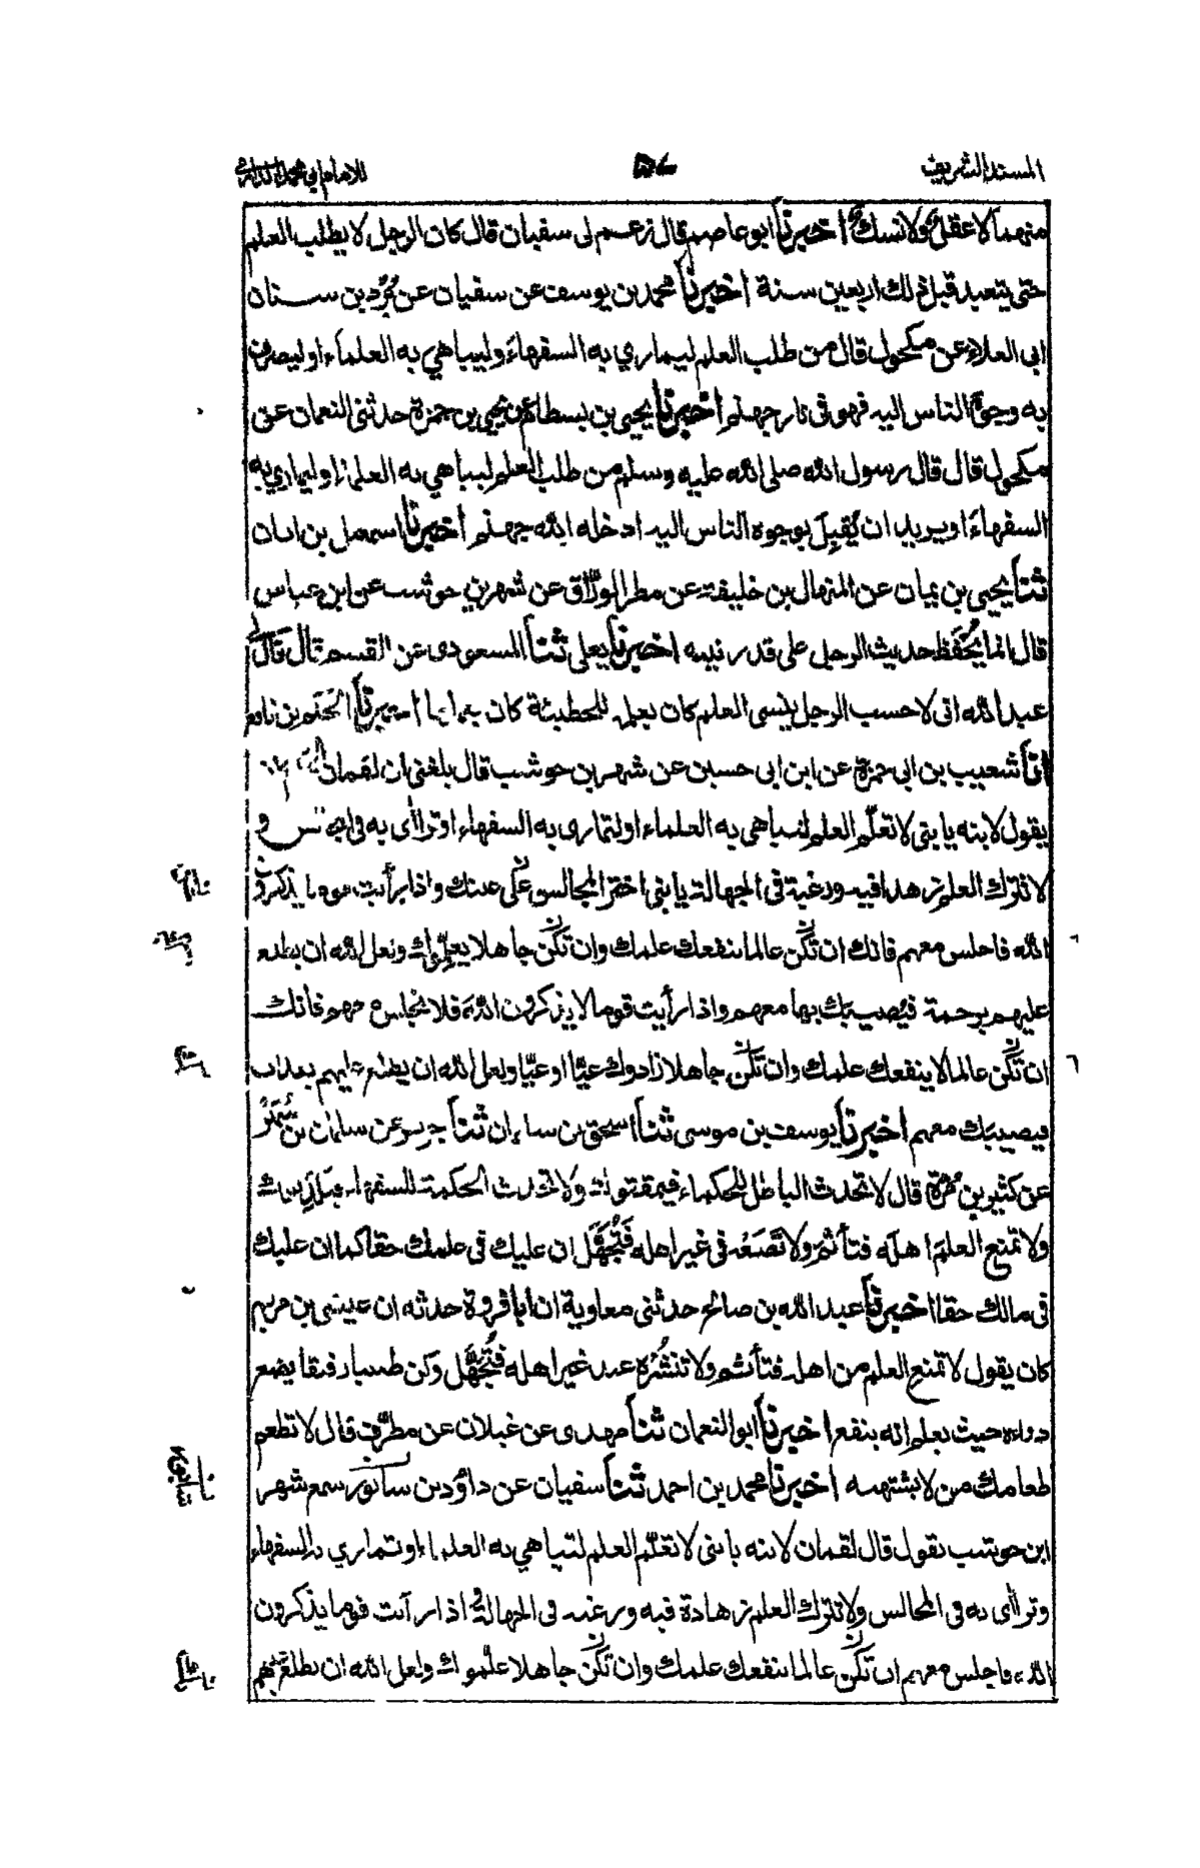 المسند الشريف
٥٧
للامام ابي محمد الدارمي
منهما لا عقل ولا نسك اخبرنا ابو عاصم قال زعم لى سفيان قال كان الرجل لا يطلب العلم
حتى يتعبد قبل ذلك اربعين سنة اخبرنا محمد بن يوسف عن سفيان عن بُرْد بن سنان
ابى العلاء عن مكحول قال من طلب العلم ليماري به السفهاء وليباهي به العلماء او ليصرف
به وجوه الناس اليه فهو فى نار جهنم اخبرنا يحيى بن بسطام عن يحيى بن حمزة حدثنى النعمان عن
مكحول قال قال رسول الله صلى الله عليه وسلم من طلب العلم ليباهي به العلماء او ليماري به
السفهاء او يريد ان يُقبِلَ بوجوه الناس اليه ادخله الله جهنم اخبرنا اسمعيل بن ابان
ثنا يحيى بن يمان عن المنهال بن خليفة عن مطر الورّاق عن شهر بن حوشب عن ابن عباس
قال انما يُحْفَظ حديث الرجل على قدر نيته اخبرنا يعلى ثنا المسعودى عن القسم قال قال لى
عبد الله انى لاحسب الرجل ينسى العلم كان يعلمه للخطيئة كان يعملها اخبرنا الحكم بن نافع
انا شعيب بن ابى حمزة عن ابن ابى حسين عن شهر بن حوشب قال بلغنى ان لقمان
يقول لابنه يا بنى لا تعلّم العلم لتباهى به العلماء او لتمارى به السفهاء او ترااى به فى المجالس و
لا تترك العلم زهدا فيه ورغبة فى الجهالة يا بنى اختر المجالس على عينك واذا رأيت قوما يذكرون
الله فاجلس معهم فانك ان تكن عالما ينفعك علمك وان تكن جاهلا يعلّموك ولعل الله ان يطلع
عليهم برحمة فيُصيبك بها معهم واذا رأيت قوما لا يذكرون الله فلا تجلس معهم فانك
ان تكن عالما لا ينفعك علمك وان تكن جاهلا زادوك غيّا او عيّا ولعل الله ان يطلع عليهم بعذاب
فيصيبك معهم اخبرنا يوسف بن موسى ثنا اسحق بن سليمان ثنا جرير عن سلمان بن سُمَيْر
عن كثير بن مُرّة قال لا تحدث الباطل للحكماء فيمقتوك ولا تحدث الحكمة للسفهاء فيكذبوك
ولا تمنع العلم اهله فتأثم ولا تَضَعْه فى غير اهله فَتُجَهَّل ان عليك فى علمك حقا كما ان عليك
فى مالك حقا اخبرنا عبد الله بن صالح حدثنى معاوية ان ابا فروة حدثه ان عيسى بن مريم
كان يقول لا تمنع العلم من اهله فتأثم ولا تنشُرْه عند غير اهله فتُجَهَّل وكن طبيبا رفيقا يضع
دواءه حيث يعلم انه ينفع اخبرنا ابو النعمان ثنا مهدى عن غيلان عن مطرّف قال لا تطعم
طعامك من لا يشتهيه اخبرنا محمد بن احمد ثنا سفيان عن داؤد بن سابور سمع شهر
ابن حوشب يقول قال لقمان لابنه يا بنى لا تعلّم العلم لتباهي به العلماء او تماري به السفهاء
وترااى به فى المجالس ولا تترك العلم زهادة فيه ورغبة فى الجهالة و اذا رأيت قوما يذكرون
الله فاجلس معهم ان تكن عالما ينفعك علمك وان تكن جاهلا علّموك ولعل الله ان يطلع عليهم